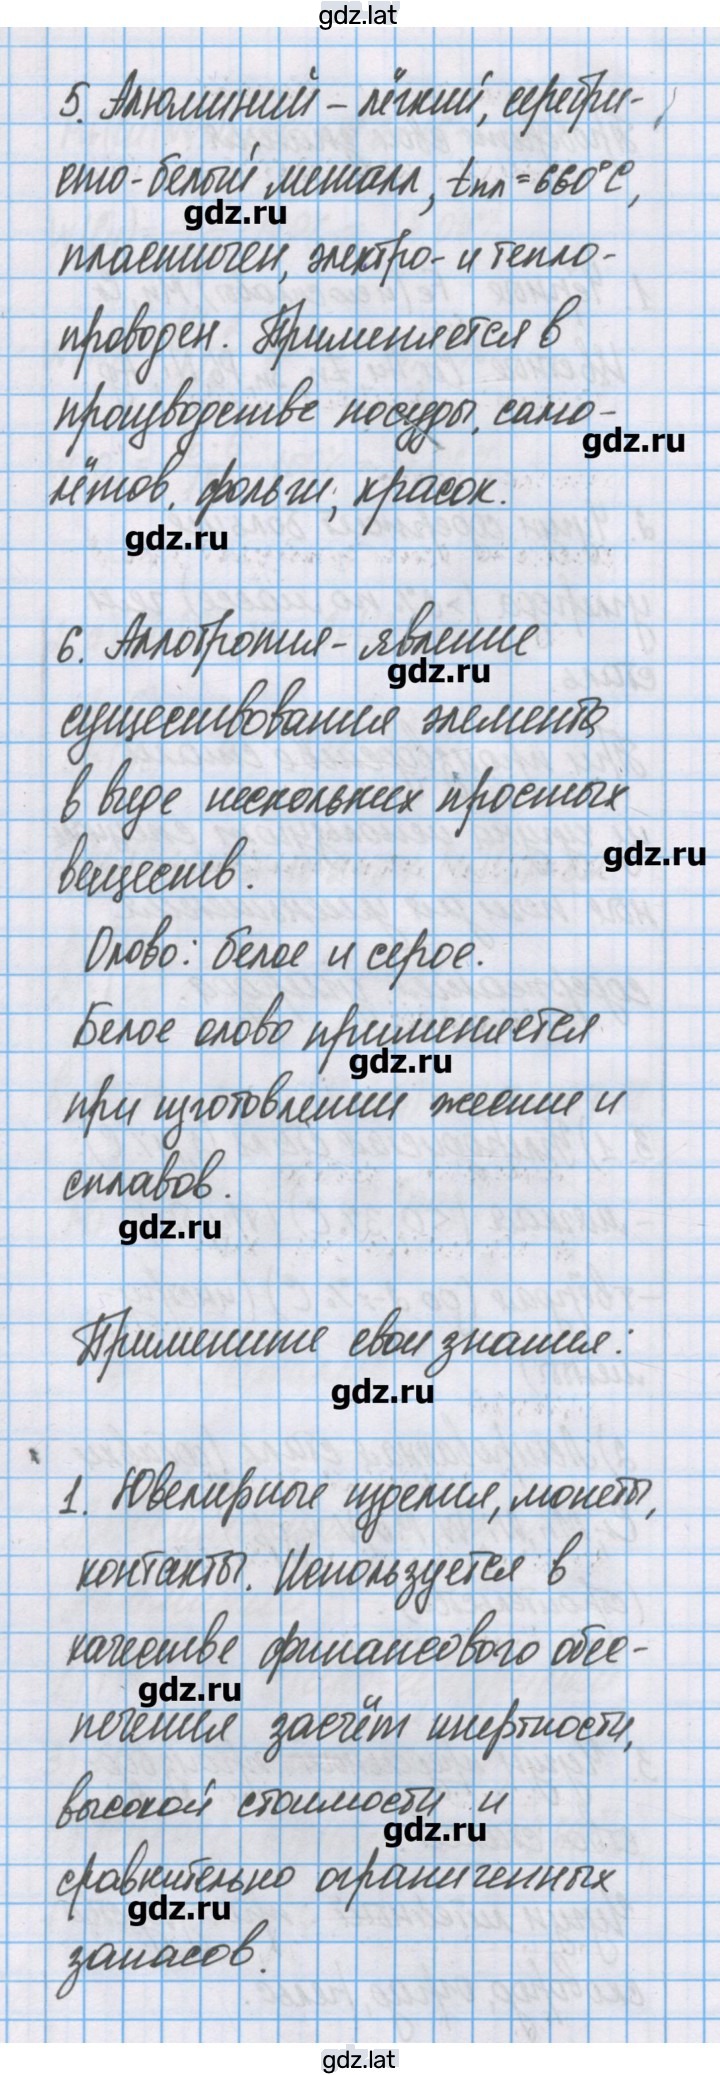 gdz.lat
5. Алюминий – лёгкий, серебри-
сто-белый металл, tпл = 660°C,
gdz.ru
пластичен, электро- и тепло-
проводен. Применяется в
производстве посуды, само-
gdz.ru
лётов, фольги, красок.
gdz.ru
6. Аллотропия – явление
gdz.ru
существования элемента
в виде нескольких простых
gdz.ru
веществ.
Олово: белое и серое.
Белое олово применяется
gdz.ru
при изготовлении жести и
сплавов.
gdz.ru
Примените свои знания:
gdz.ru
1. Ювелирные изделия, монеты,
контакты. Используется в
качестве финансового обес-
gdz.ru
печения засчёт инертности,
высокой стоимости и
gdz.ru
сравнительно ограниченных
gdz.ru
запасов.
gdz.lat